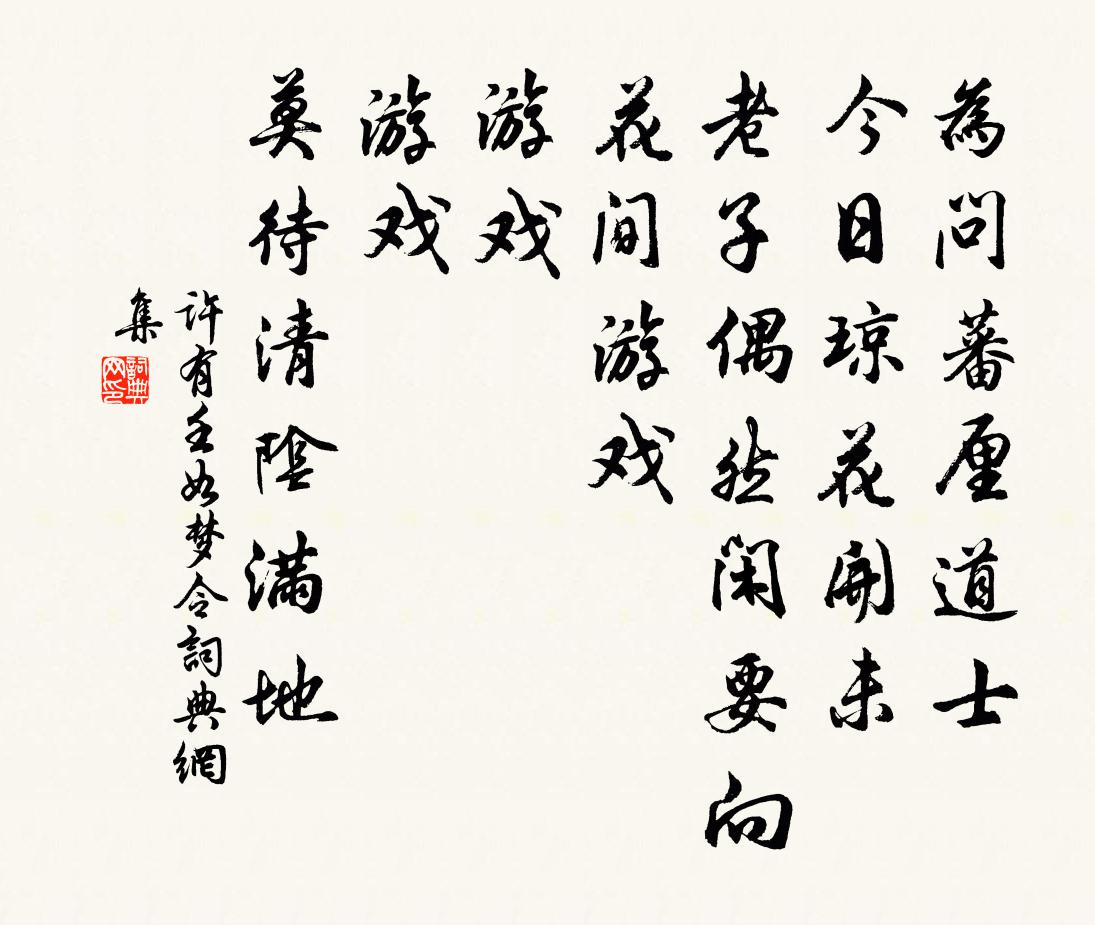 為问蕃厘道士
今日琼花開未
老子偶然闲要向
花间游戏
游戏
游戏
莫待清陰满地
許有壬如梦令詞典網
集
詞典网印